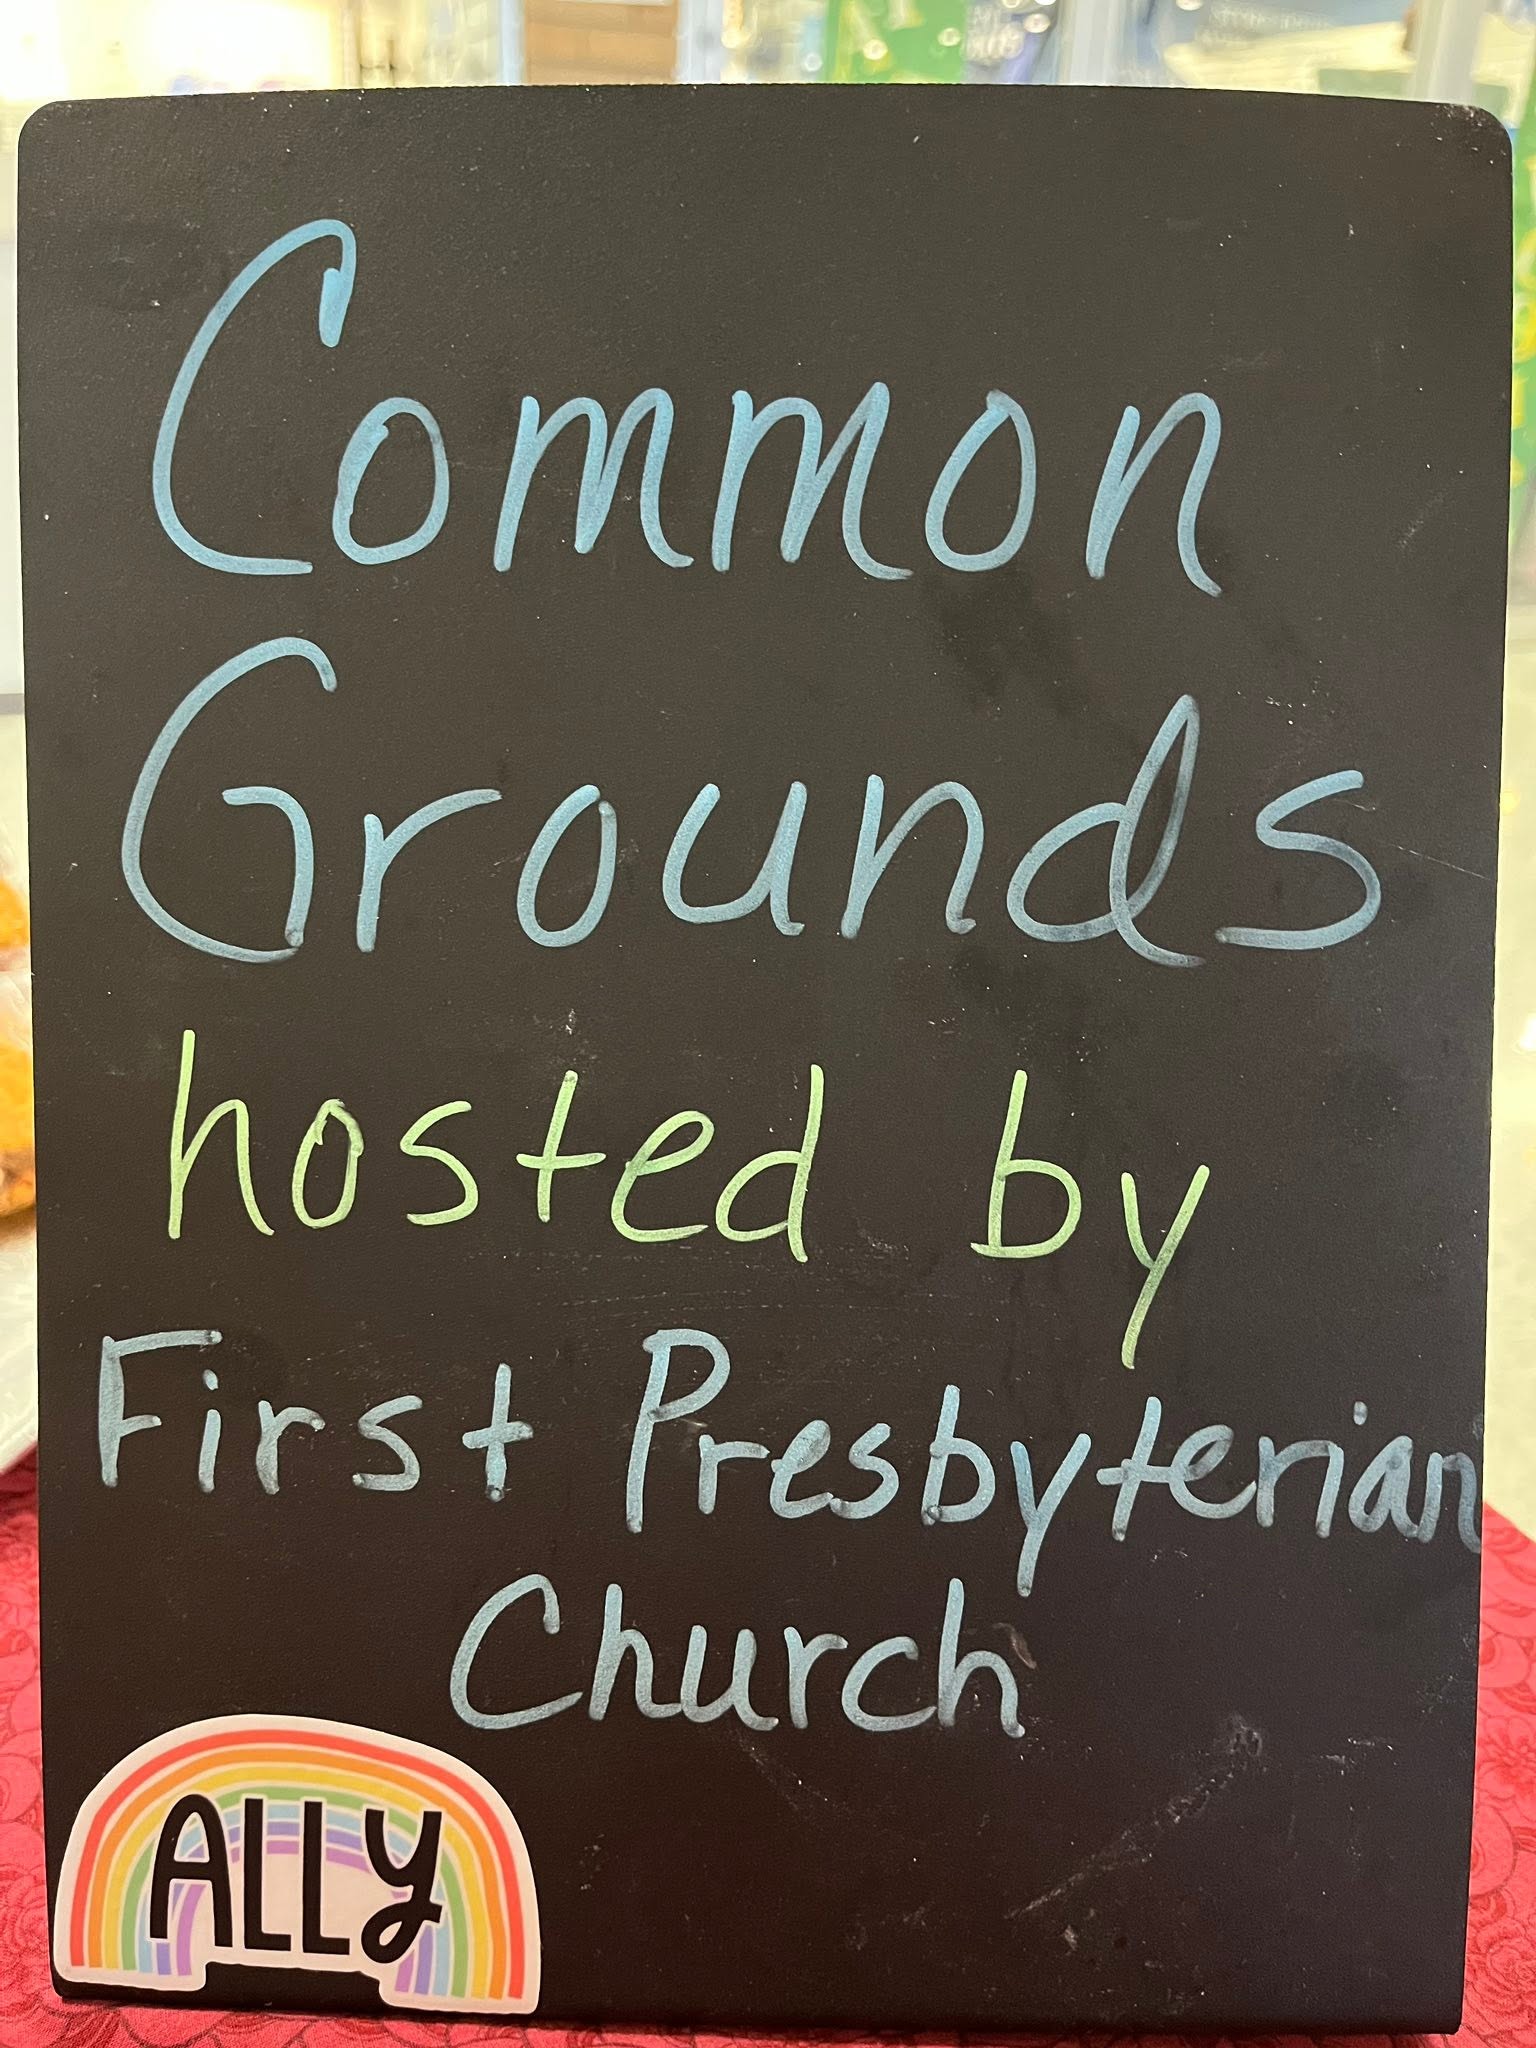 Common
Grounds
hosted by
First Presbyterian
Church
ALLY